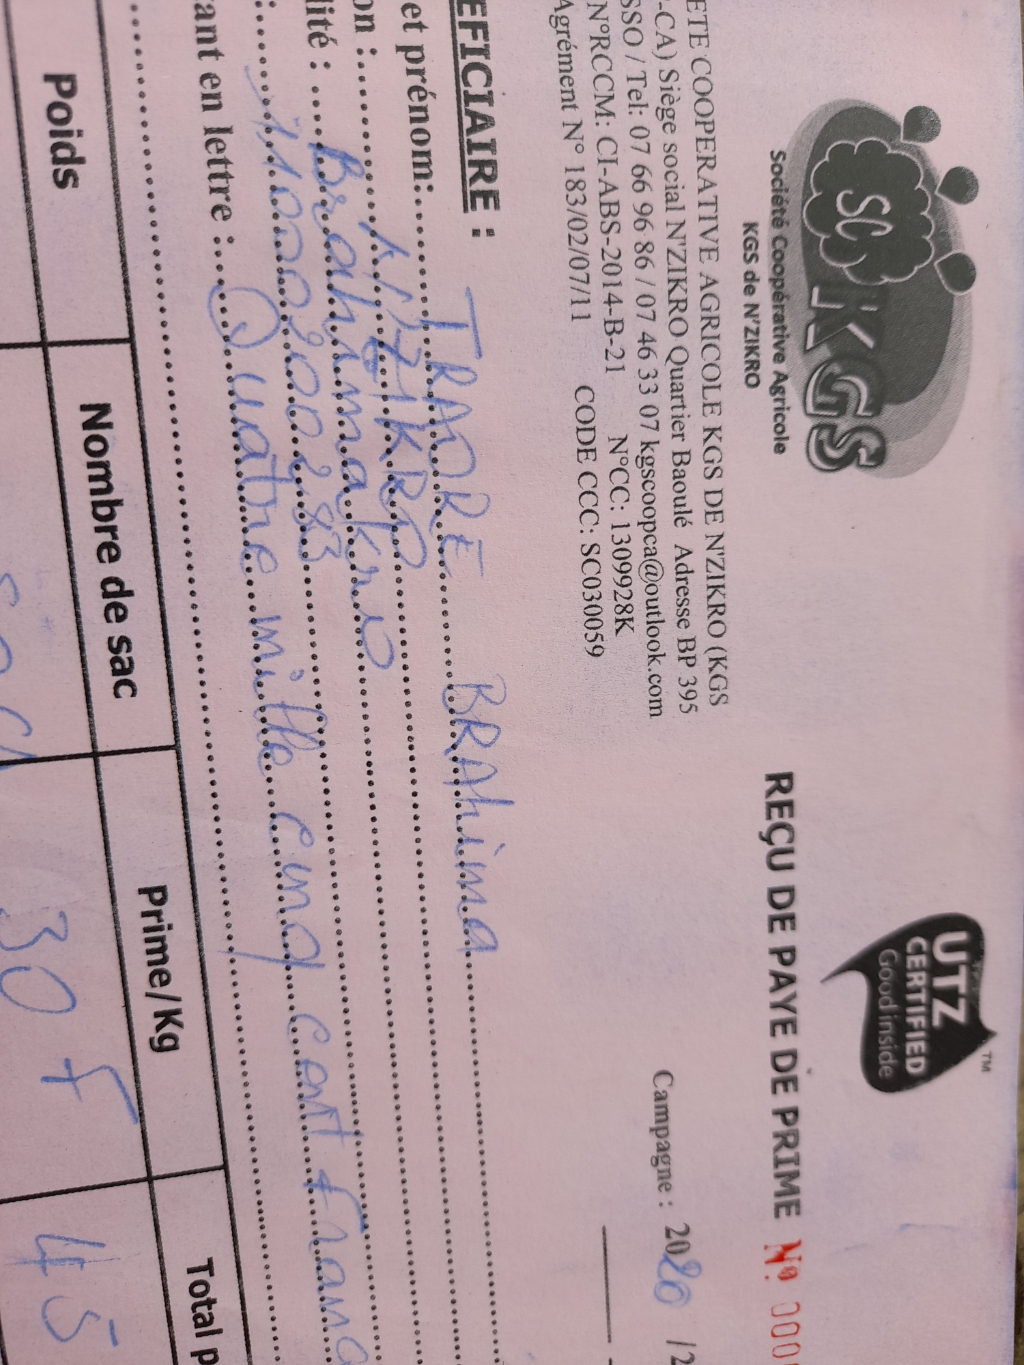 SC KGS
Société Coopérative Agricole
KGS de N'ZIKRO
UTZ
CERTIFIED
Good inside
TM
REÇU DE PAYE DE PRIME Nº. 000
ETE COOPERATIVE AGRICOLE KGS DE N'ZIKRO (KGS
-CA) Siège social N'ZIKRO Quartier Baoulé Adresse BP 395
SSO / Tel: 07 66 96 86 / 07 46 33 07 kgscoopca@outlook.com
N°RCCM: CI-ABS-2014-B-21 N°CC: 1309928K
Agrément N° 183/02/07/11 CODE CCC: SC030059
Campagne : 2020 / 2
EFICIAIRE :
et prénom: TRAORE BRAhima
on : N'ZIKRO
lité : Brahimakro
: 11000200283
ant en lettre : Quatre mille cinq cent franc
Poids Nombre de sac Prime/Kg Total p
30 F 45